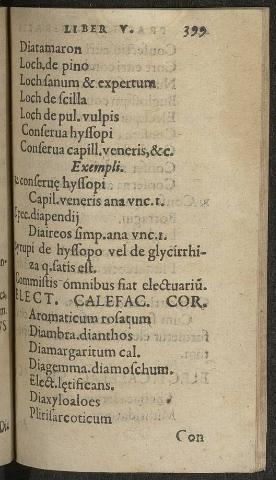 LIBER V. 399
Diatamaron
Loch.de pino
Loch sanum & expertum
Loch de scilla
Loch de pul. vulpis
Conserua hyssopi
Conserua capill. veneris,&c.
Exempli.
conseruę hyssopi
Capil. veneris ana vnc.1.
Spec.diapendij
Diaireos simp.ana vnc.1.
Syrupi de hyssopo vel de glycirrhi-
za q.satis est.
Commistis omnibus fiat electuariū.
ELECT. CALEFAC. COR.
Aromaticum rosatum
Diambra.dianthos
Diamargaritum cal.
Diagemma.diamoschum.
Elect.lętificans.
Diaxyloaloes
Plirisarcoticum
Con